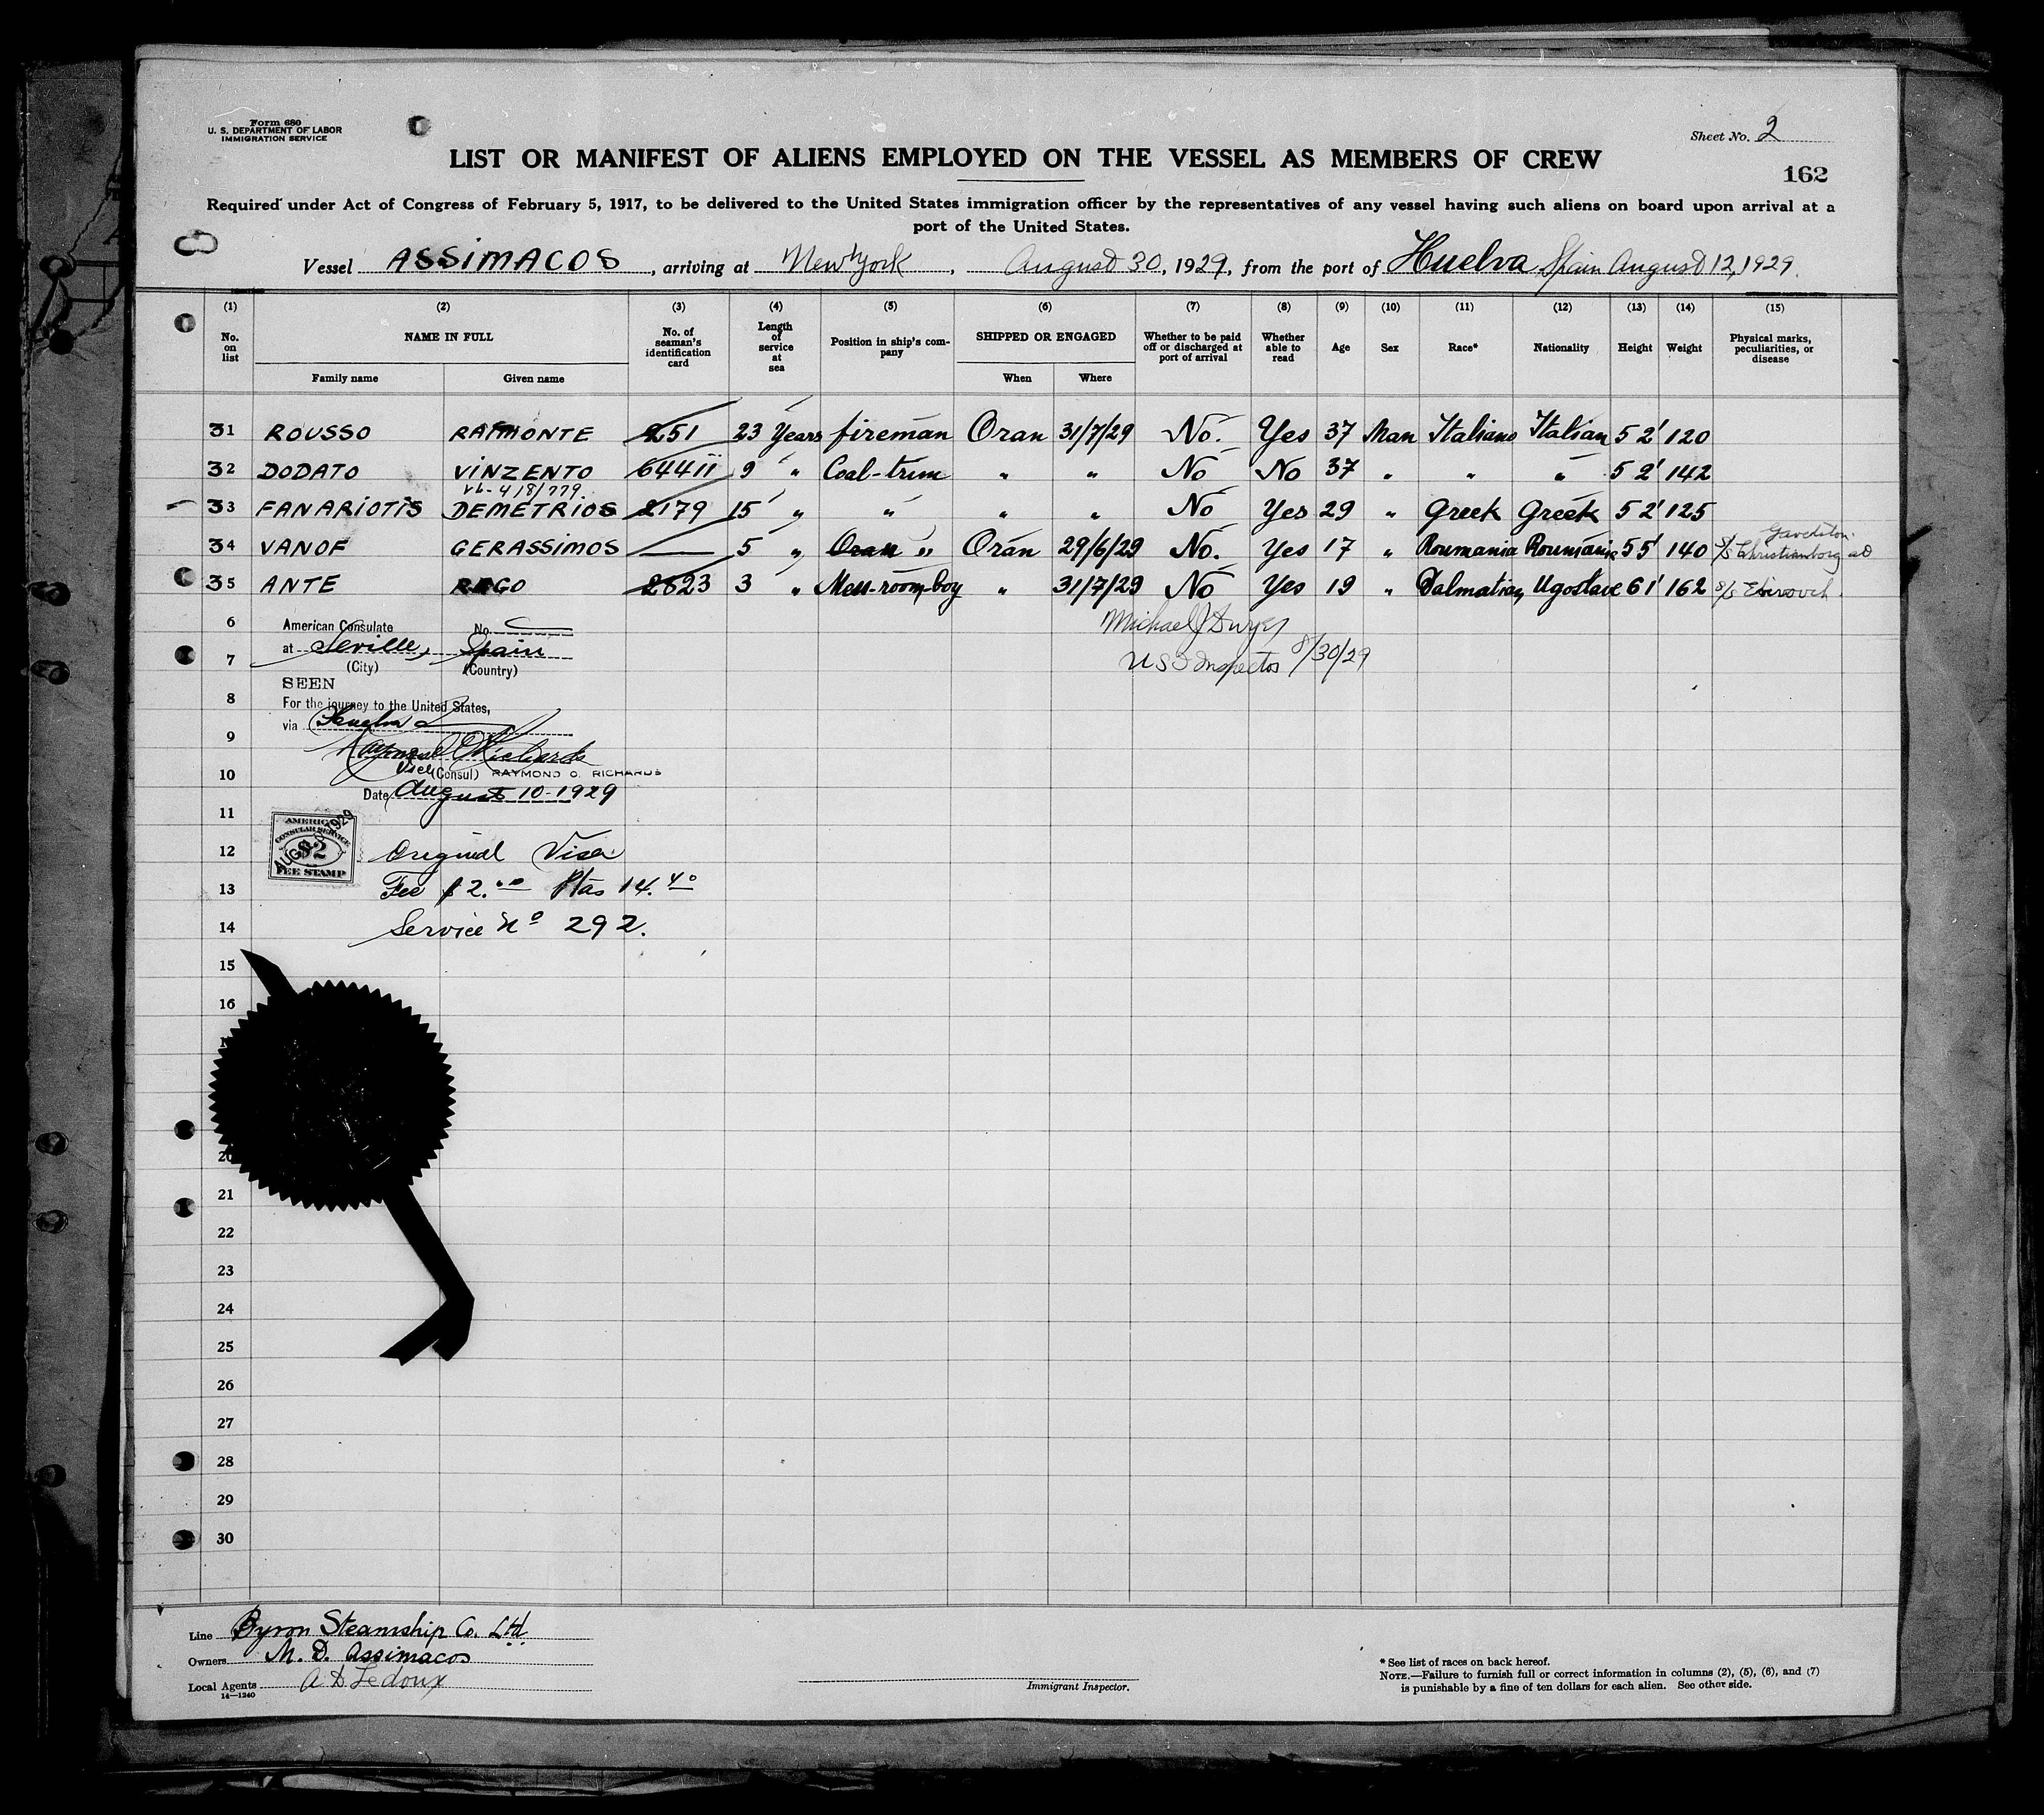 Form 680
U. S. DEPARTMENT OF LABOR
IMMIGRATION SERVICE
Sheet No. 2
LIST OR MANIFEST OF ALIENS EMPLOYED ON THE VESSEL AS MEMBERS OF CREW
162
Required under Act of Congress of February 5, 1917, to be delivered to the United States immigration officer by the representatives of any vessel having such aliens on board upon arrival at a
port of the United States.
Vessel ASSIMACOS, arriving at New York, August 30, 1929, from the port of Huelva Spain August 12, 1929.
(1) (2) (3) (4) (5) (6) (7) (8) (9) (10) (11) (12) (13) (14) (15)
No. on list NAME IN FULL Family name Given name No. of seaman's identification card Length of service at sea Position in ship's company SHIPPED OR ENGAGED When Where Whether to be paid off or discharged at port of arrival Whether able to read Age Sex Race* Nationality Height Weight Physical marks, peculiarities, or disease
31 ROUSSO RAIMONTE 2251 23 Years fireman Oran 31/7/29 No. Yes 37 Man Italiano Italian 5 2' 120
32 DODATO VINZENTO 64411 9 " Coal-trim " " No No 37 " " " 5 2' 142
418/779.
33 FANARIOTIS DEMETRIOS 2179 15 " " " " No Yes 29 " Greek Greek 5 2' 125
Gavelston
34 VANOF GERASSIMOS — 5 " Oran " Oran 29/6/29 No. Yes 17 " Roumania Roumania 5 5' 140 S/S Christianborg
35 ANTE REGO 2823 3 " Mess-room-boy " 31/7/29 No Yes 19 " Dalmatian Ugoslave 6 1' 162 S/S
6 American Consulate No.
Michael J Dwyer
at Seville, Spain
7 (City) (Country)
U S I Inspector 8/30/29
SEEN
8 For the journey to the United States,
via Huelva
9 Raymond O Richards
10 Vice (Consul) RAYMOND O. RICHARDS
Date August 10-1929
11
AMERICAN
CONSULAR SERVICE
$2
FEE STAMP
AUG 10 1929
12 Original Visa
13 Fee $2.00 Ptas 14.40
14 Service No 292.
15
16
20
21
22
23
24
25
26
27
28
29
30
Line Byron Steamship Co. Ltd.
Owners M. D. Assimacos
Local Agents A D Ledoux
14—1240
Immigrant Inspector.
* See list of races on back hereof.
NOTE.—Failure to furnish full or correct information in columns (2), (5), (6), and (7)
is punishable by a fine of ten dollars for each alien. See other side.